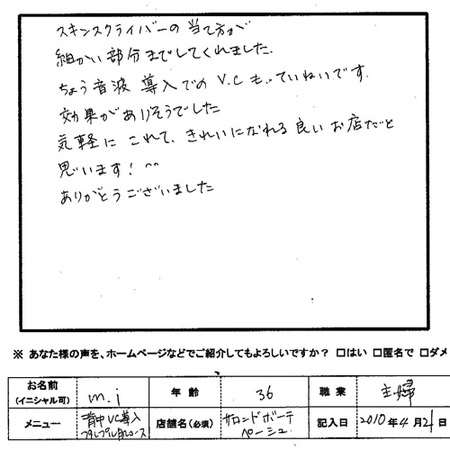 スキンスクライバーの当て方が
細かい部分までしてくれました.
ちょう音波導入でのV.Cもていねいです.
効果がありそうでした
気軽にこれて、きれいになれる良いお店だと
思います! ^^
ありがとうございました
※ あなた様の声を、ホームページなどでご紹介してもよろしいですか? □はい □匿名で □ダメ
お名前(イニシャル可) m.i 年齢 36 職業 主婦
メニュー 背中VC導入 コース 店舗名(必須) サロンドボーテ ペーシュ 記入日 2010年4月21日